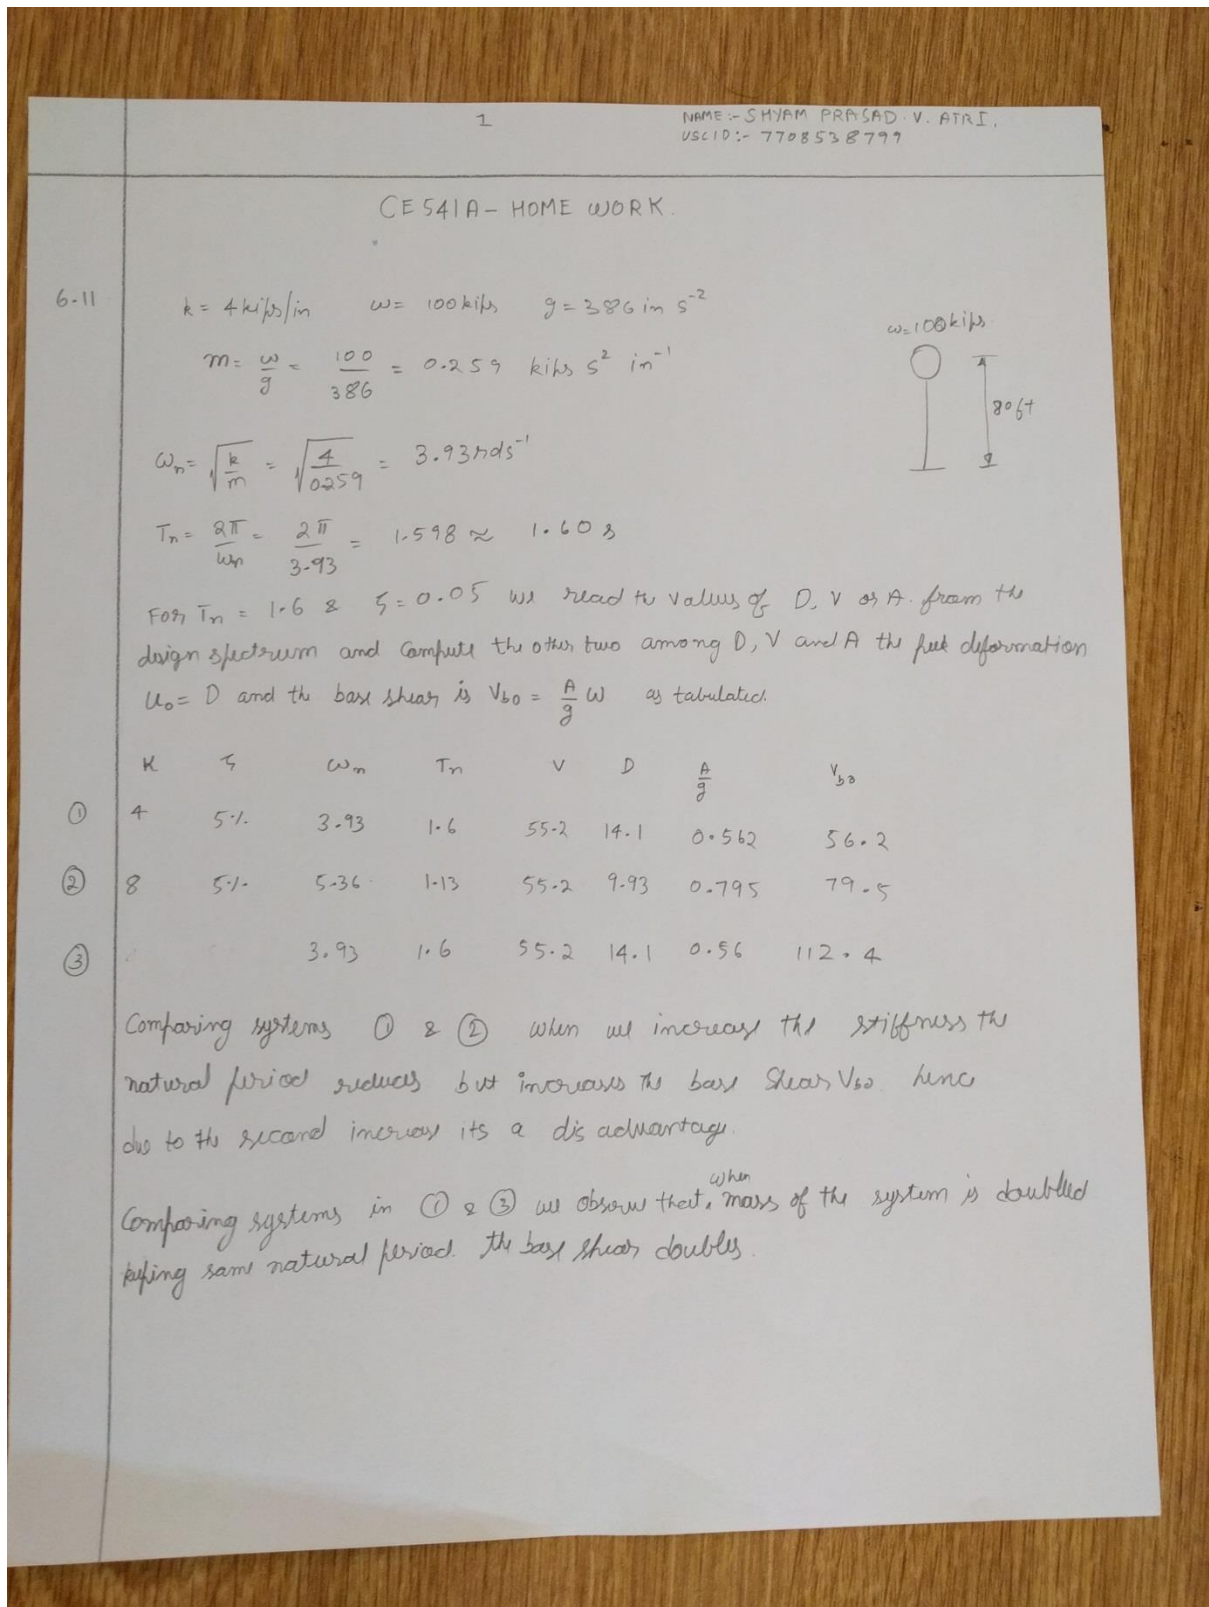 1
NAME :- SHYAM PRASAD. V. ATRI.
USCID :- 7708538799
CE541A - HOME WORK.
6-11
k = 4 kips/in    w = 100 kips    g = 386 in s^-2
w = 100 kips
m = w/g = 100/386 = 0.259 kips s^2 in^-1
80ft
ωn = √(k/m) = √(4/0.259) = 3.93 rds^-1
Tn = 2π/ωn = 2π/3.93 = 1.598 ≈ 1.60 s
For Tn = 1.6 & ζ = 0.05 we read the values of D, V or A. from the
design spectrum and compute the other two among D, V and A the peak deformation
u₀ = D and the base shear is Vbo = A/g w as tabulated.
K    ζ    ωn    Tn    V    D    A/g    Vbo
① 4    5%    3.93    1.6    55.2    14.1    0.562    56.2
② 8    5%    5.36    1.13    55.2    9.93    0.795    79.5
③    3.93    1.6    55.2    14.1    0.56    112.4
Comparing systems ① & ② when we increase the stiffness the
natural period reduces but increases the base shear Vbo. hence
due to the second increase its a dis advantage.
Comparing systems in ① & ③ we observe that, when mass of the system is doubled
keeping same natural period. the base shear doubles.